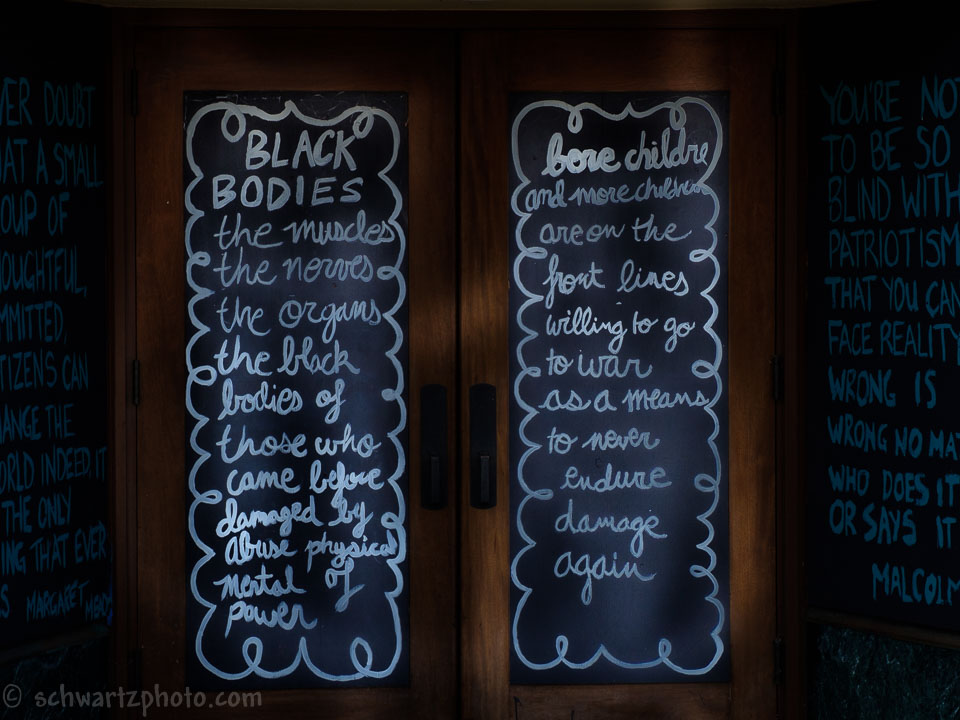 VER DOUBT
AT A SMALL
OUP OF
OUGHTFUL,
MMITTED,
TIZENS CAN
ANGE THE
ORLD INDEED, IT
THE ONLY
ING THAT EVER
S MARGARET MEAD
BLACK
BODIES
the muscles
the nerves
the organs
the black
bodies of
those who
came before
damaged by
Abuse physical
mental of
power
bore childre
and more children
are on the
front lines
willing to go
to war
as a means
to never
endure
damage
again
YOU'RE NOT
TO BE SO
BLIND WITH
PATRIOTISM
THAT YOU CAN
FACE REALITY
WRONG IS
WRONG NO MAT
WHO DOES IT
OR SAYS IT
MALCOLM
© schwartzphoto.com